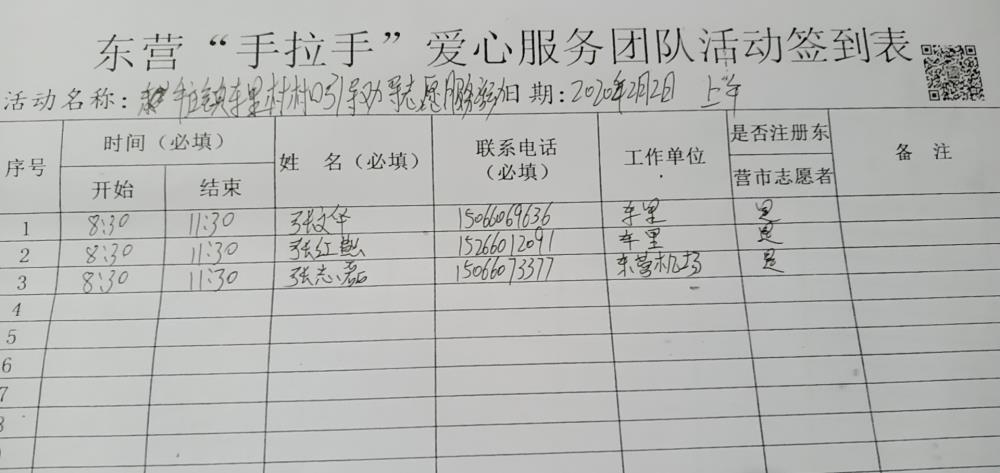 东营“手拉手”爱心服务团队活动签到表
活动名称: 镇车里村村口引导劝导志愿服务活动 日期: 2020年2月2日 上午
序号 时间（必填） 姓 名（必填） 联系电话（必填） 工作单位 是否注册东营市志愿者 备 注
开始 结束
1 8:30 11:30 张文华 15066069636 车里 是
2 8:30 11:30 张红 15266012091 车里 是
3 8:30 11:30 张志磊 15066073377 东营机场 是
4
5
6
7
8